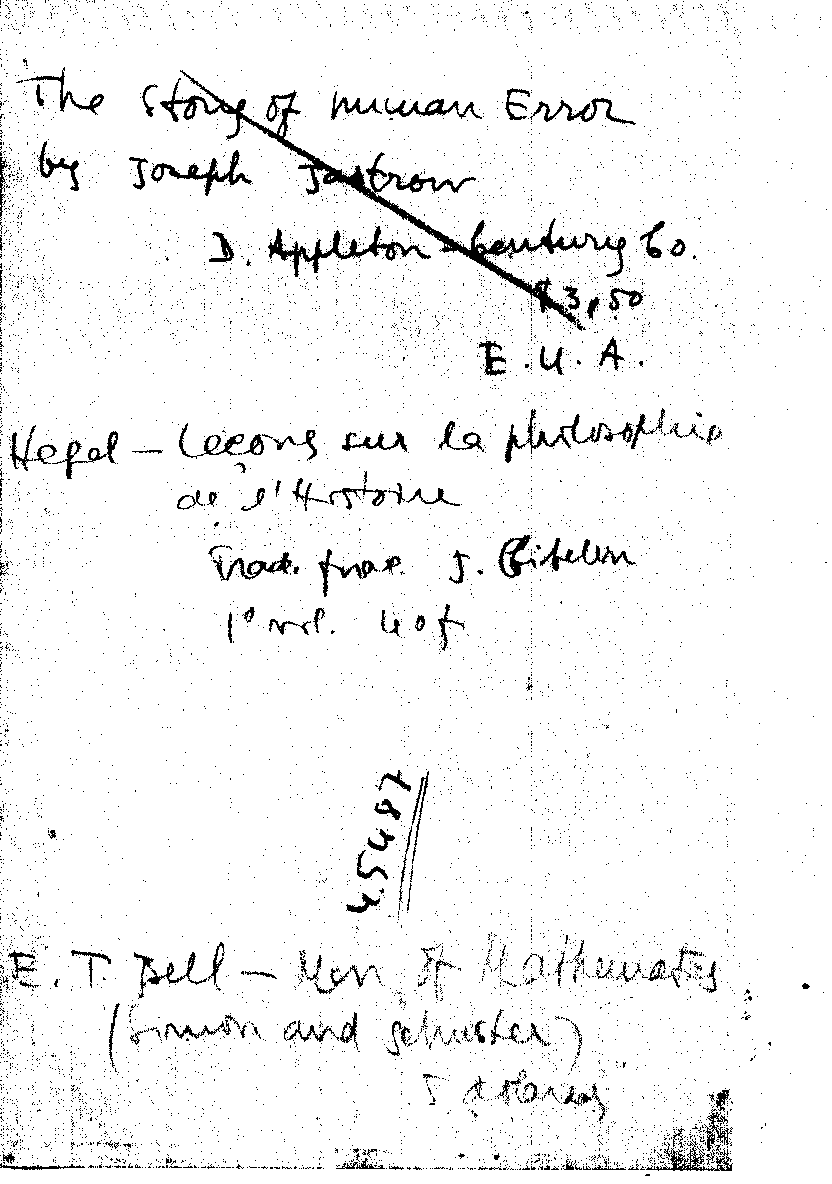 The Story of Human Error
by Joseph Jastrow
D. Appleton-Century Co.
$3,50
E.U.A.
Hegel — Leçons sur la philosophie
de l'Histoire
Trad. franc. J. Gibelin
1º vol. 40f
45487
E. T. Bell — Men of Mathematics
(Simon and Schuster)
5 dolares